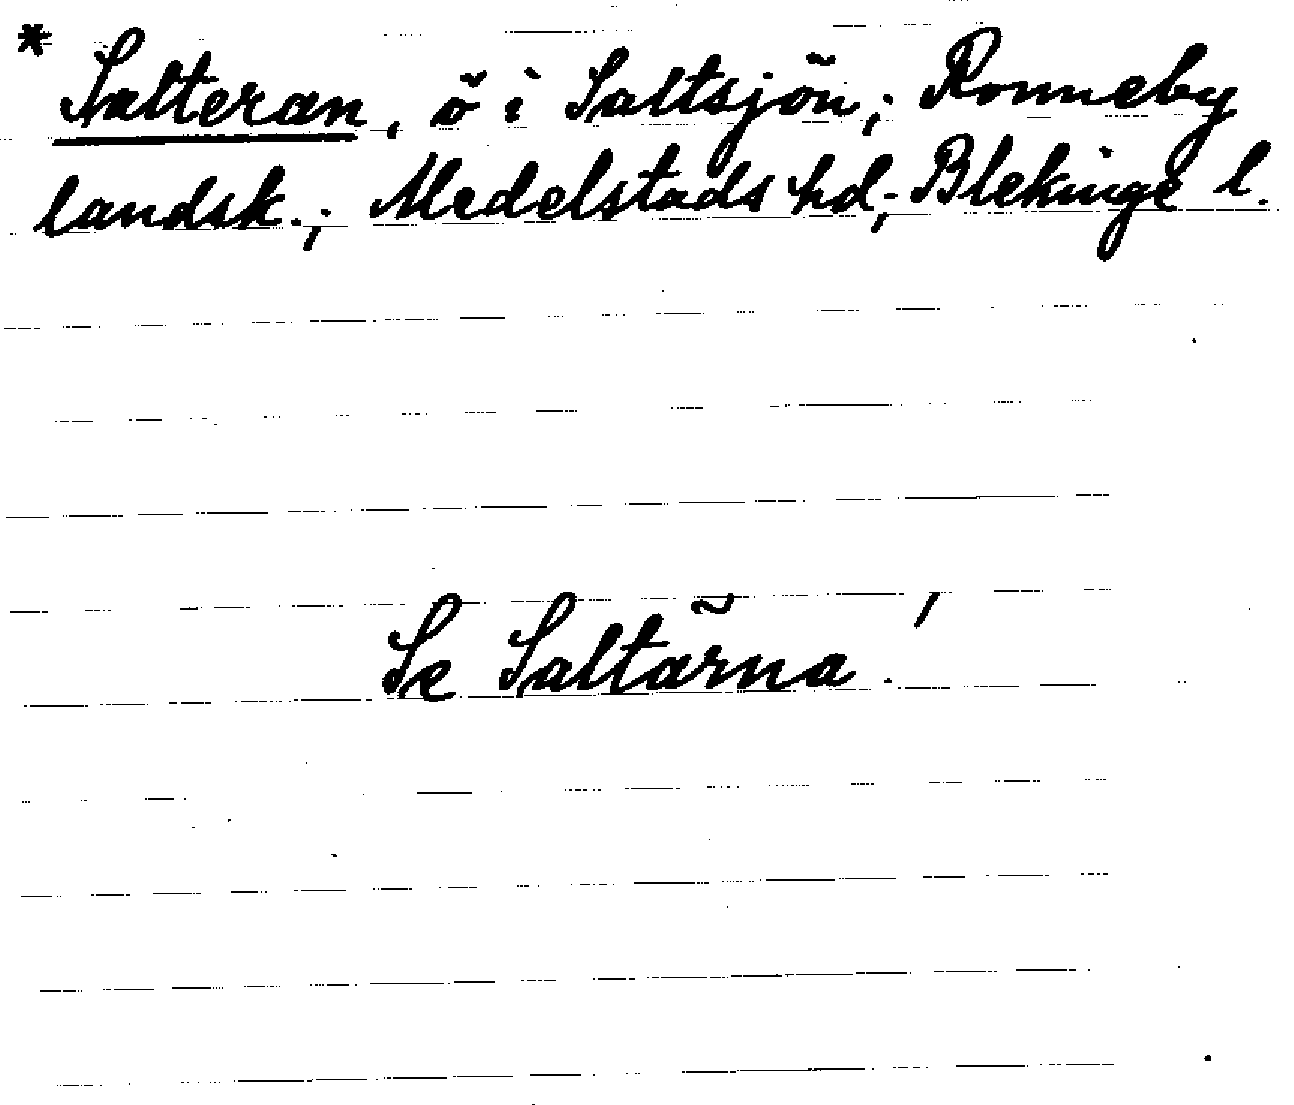 * Salteran, ö i Saltsjön; Ronneby
landsk.; Medelstads hd; Blekinge l.
Se Saltärna!